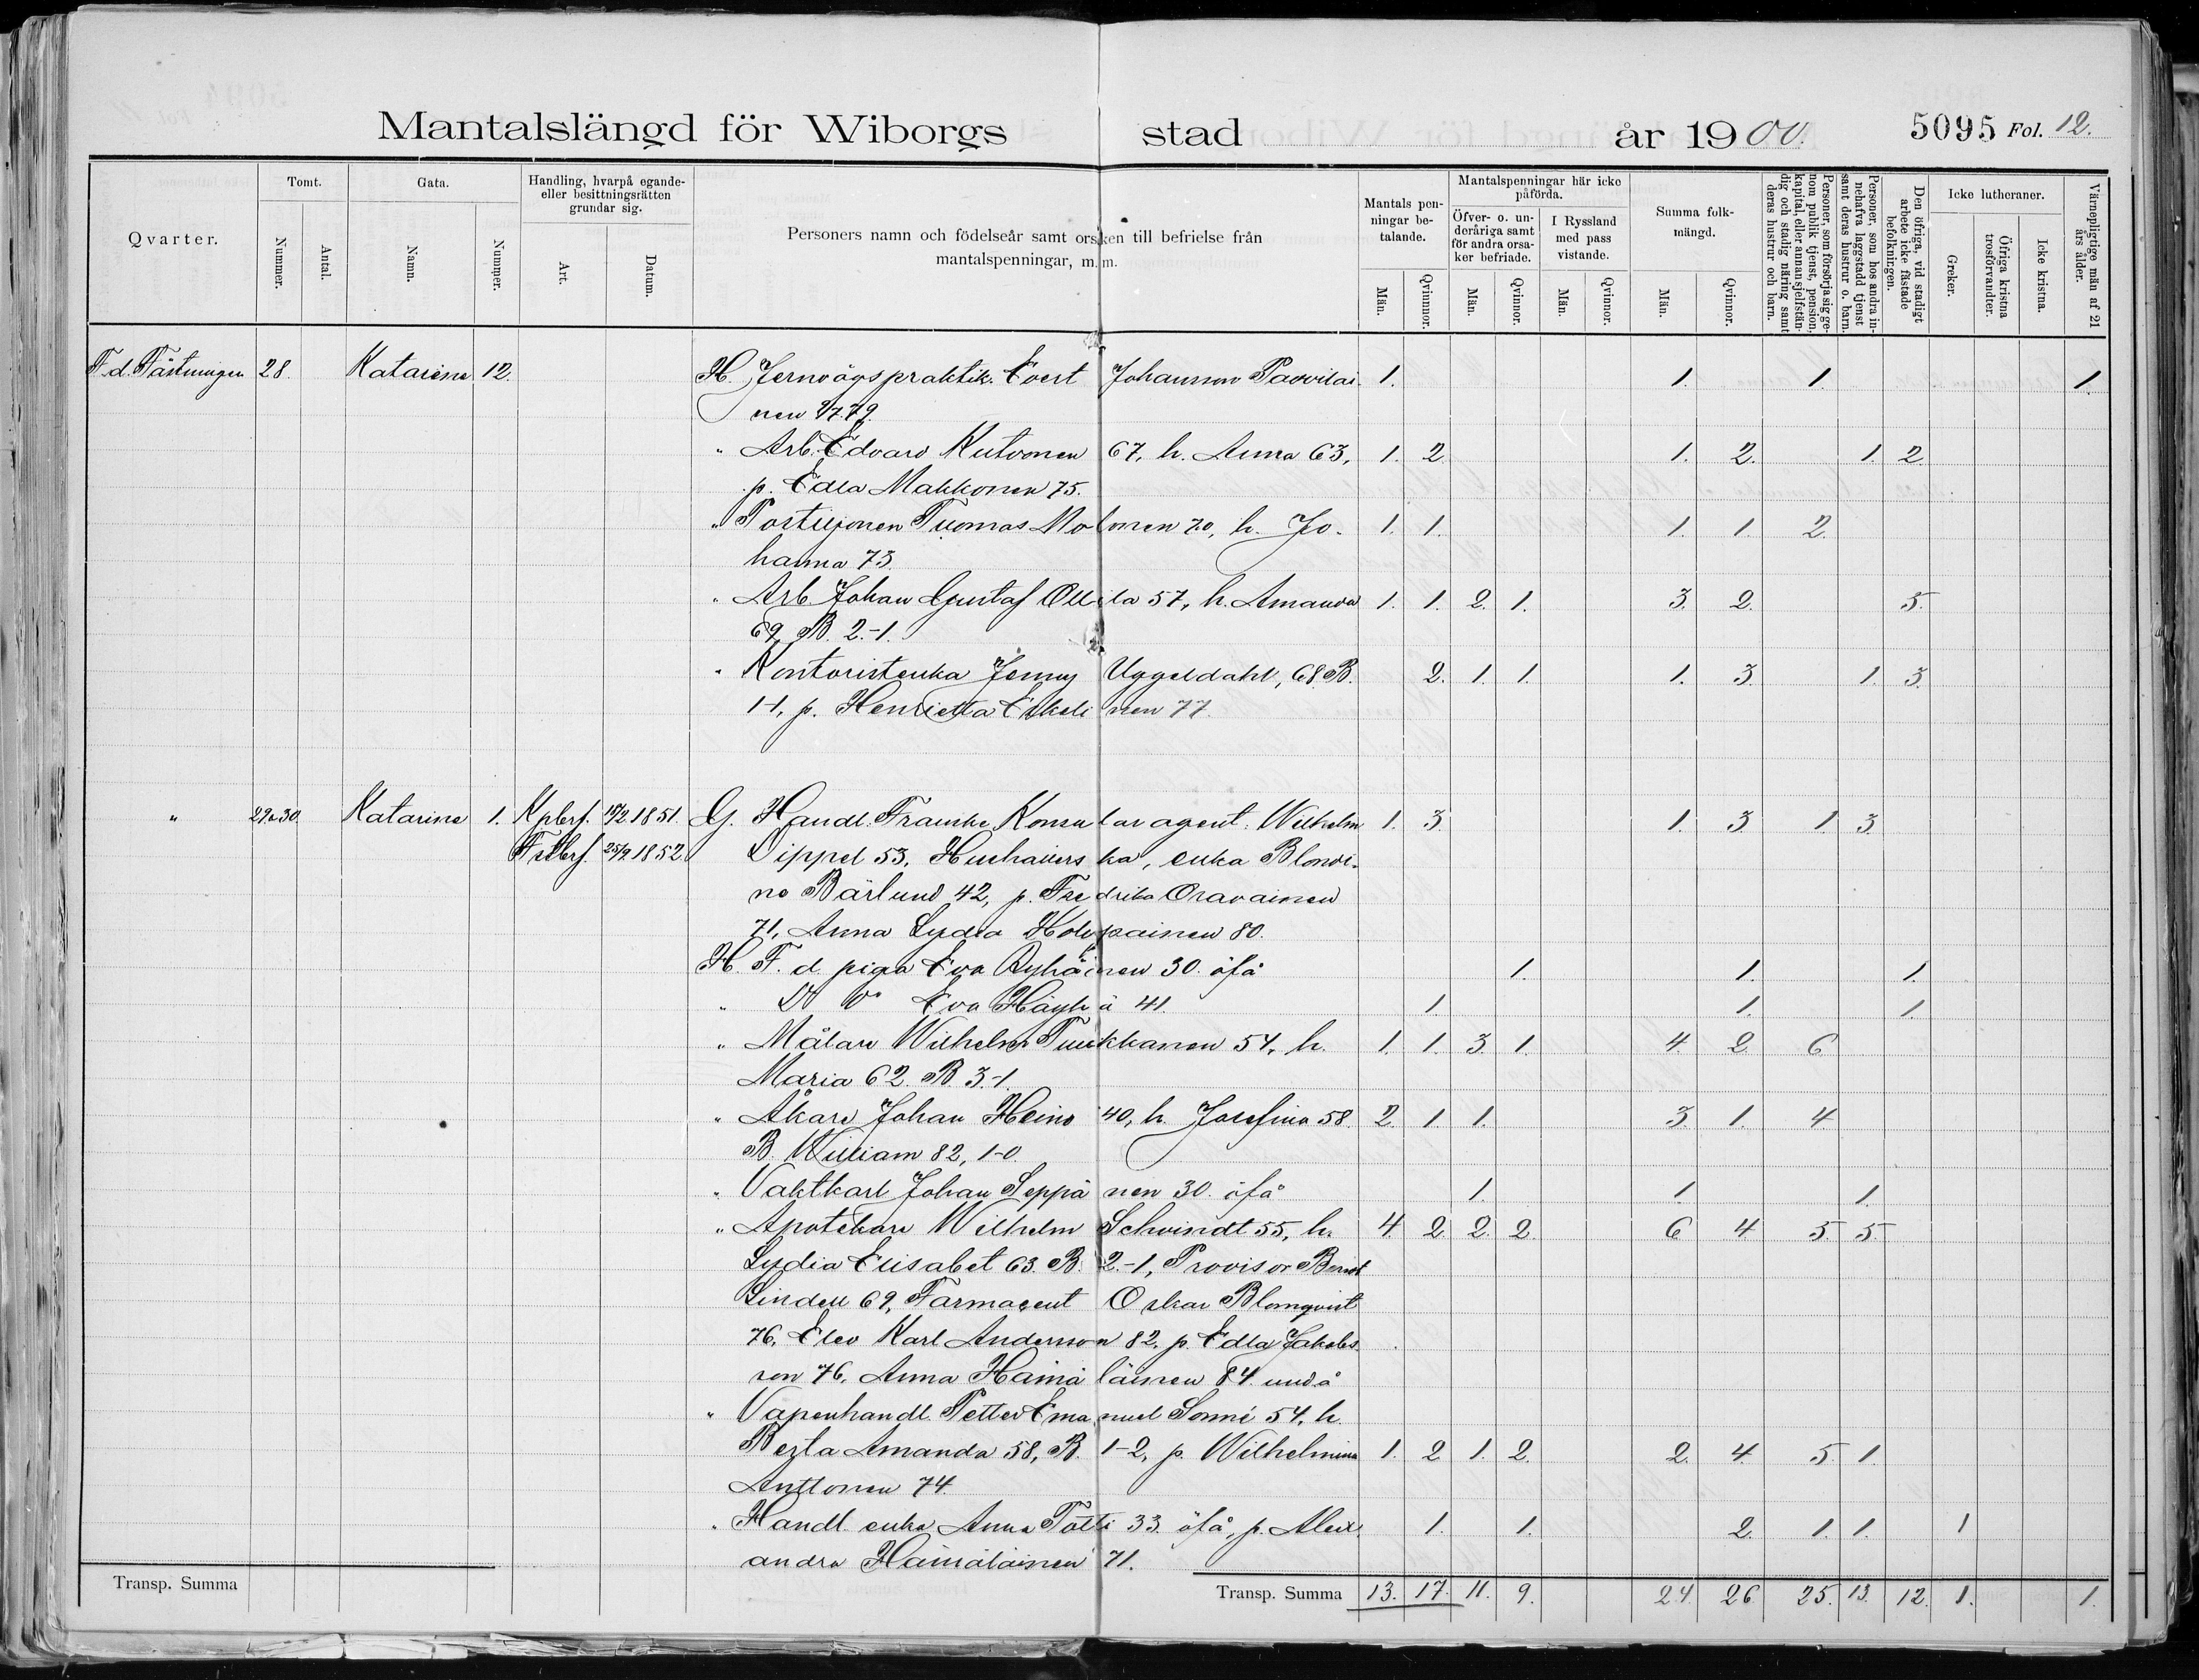 Mantalslängd för Wiborgs stad år 1900. 5095 Fol. 12.
Qvarter.
Tomt.
Nummer.
Antal.
Gata.
Namn.
Nummer.
Handling, hvarpå egande-
eller besittningsrätten
grundar sig.
Art.
Datum.
Personers namn och födelseår samt orsaken till befrielse från
mantalspenningar, m. m.
Mantals pen-
ningar be-
talande.
Män.
Qvinnor.
Mantalspenningar här icke
påförda.
Öfver- o. un-
deråriga samt
för andra orsa-
ker befriade.
Män.
Qvinnor.
I Ryssland
med pass
vistande.
Män.
Qvinnor.
Summa folk-
mängd.
Män.
Qvinnor.
Personer, som försörja sig ge-
nom publik tjenst, pension,
kapital, eller annan sjelfstän-
dig och stadig näring samt
deras hustrur och barn.
Personer, som hos andra in-
nehafva laggstadd tjenst
samt deras hustrur o. barn.
Den öfriga, vid stadigt
arbete icke fästade
befolkningen.
Icke lutheraner.
Greker.
Öfriga kristna
trosförvandter.
Icke kristna.
Värnepligtige män af 21
års ålder.
F.d. Fästningen 28. Katarina 12. H. Jernvägspraktik. Evert Johansson Paavilai- 1. 1. 1. 1
nen 9/7 79.
" Arb. Edvard Kutvonen 67, h. Anna 63, 1. 2 1. 2. 1. 2
p. Edla Makkonen 75.
" Postiljonen Tuomas Molonen 70, h. Jo- 1. 1. 1. 1. 2.
hanna 73.
" Arb. Johan Gustaf Ollila 57, h. Amanda 1. 1. 2. 1. 3. 2. 5.
69, B. 2-1.
" Kontoristenka Jenny Uggeldahl, 68 B. 2. 1. 1. 1. 3. 1. 3.
1-1, p. Henrietta Eskelinen 77.
" 29 a 30. Katarina 1. Kpbrf. 18/2 1851. G. Handl. Franska Konsular agent. Wilhelm 1. 3. 1. 3 1. 3
Fstbrf. 25/2 1852. Dippel 53, Hushållerska, enka Blondi-
na Bärlund 42, p. Fredrika Oravainen
71, Anna Lydia Holopainen 80.
H. F. d. piga Eva Ryhäinen 30. öfå 1. 1. 1.
" D:o D:o Eva Häyhä 41. 1. 1. 1.
" Målare Wilhelm Tuukkanen 54, h. 1. 1. 3. 1. 4. 2. 6
Maria 62. B. 3-1.
" Åkare Johan Heino 40, h. Josefina 58. 2. 1 1. 3. 1. 4
B. William 82, 1-0.
" Vaktkarl Johan Seppänen 30. öfå 1. 1. 1.
" Apotekare Wilhelm Schvindt 55, h. 4. 2. 2. 2 6 4 5. 5.
Lydia Elisabet 63. B. 2-1, Provisor Bernt
Lindell 69, Farmaceut Oskar Blomqvist
76, Elev Karl Anderson 82, p. Edla Jakobs-
son 76, Anna Hämäläinen 84 undå
" Vapenhandl. Petter Emanuel Sonné 54, h.
Berta Amanda 58, B. 1-2, p. Wilhelmina 1. 2 1. 2. 2. 4. 5. 1.
Anttonen 74.
" Handl. enka Anna Tötti 33. öfå, p. Alex- 1. 1. 2. 1. 1. 1
andra Hämäläinen 71.
Transp. Summa Transp. Summa 13. 17. 11. 9. 24. 26. 25. 13. 12. 1. 1.